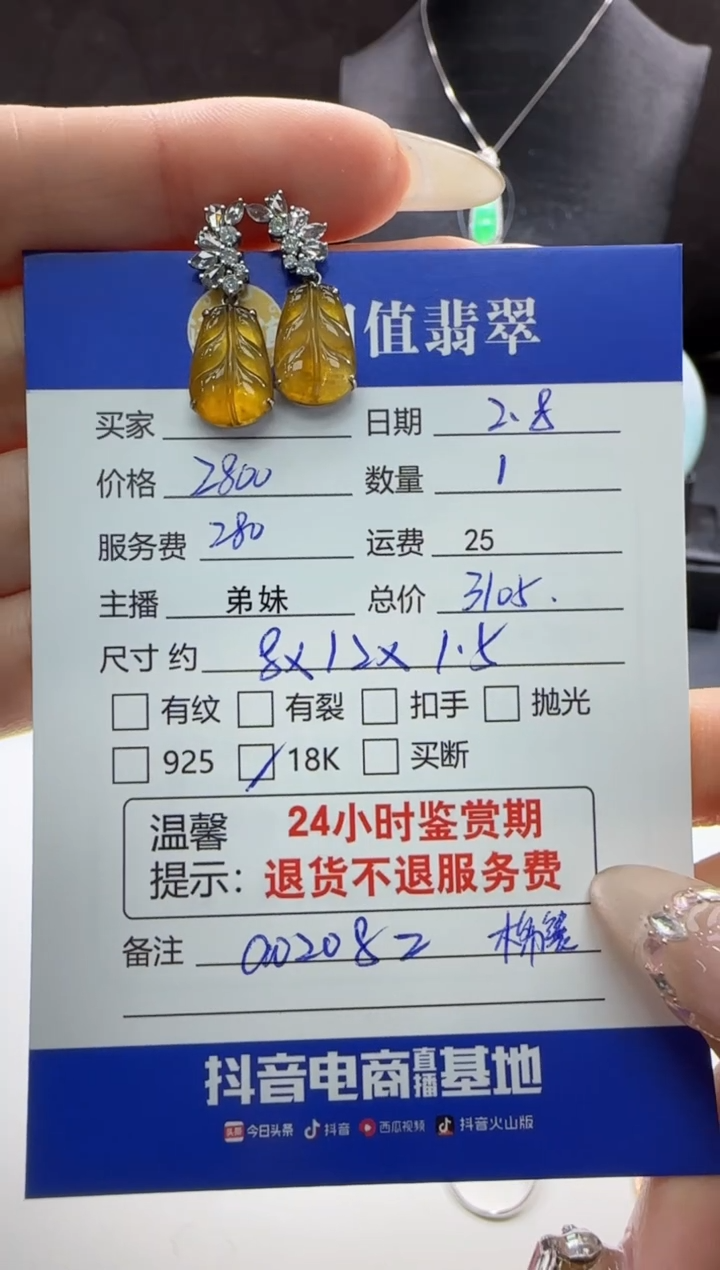 值翡翠
买家 日期 2.8
价格 2800 数量 1
服务费 280 运费 25
主播 弟妹 总价 3105.
尺寸 约 8x12x1.5
有纹 有裂 扣手 抛光
925 18K 买断
温馨 24小时鉴赏期
提示: 退货不退服务费
备注 002082
抖音电商直播基地
头条 今日头条 抖音 西瓜视频 抖音火山版